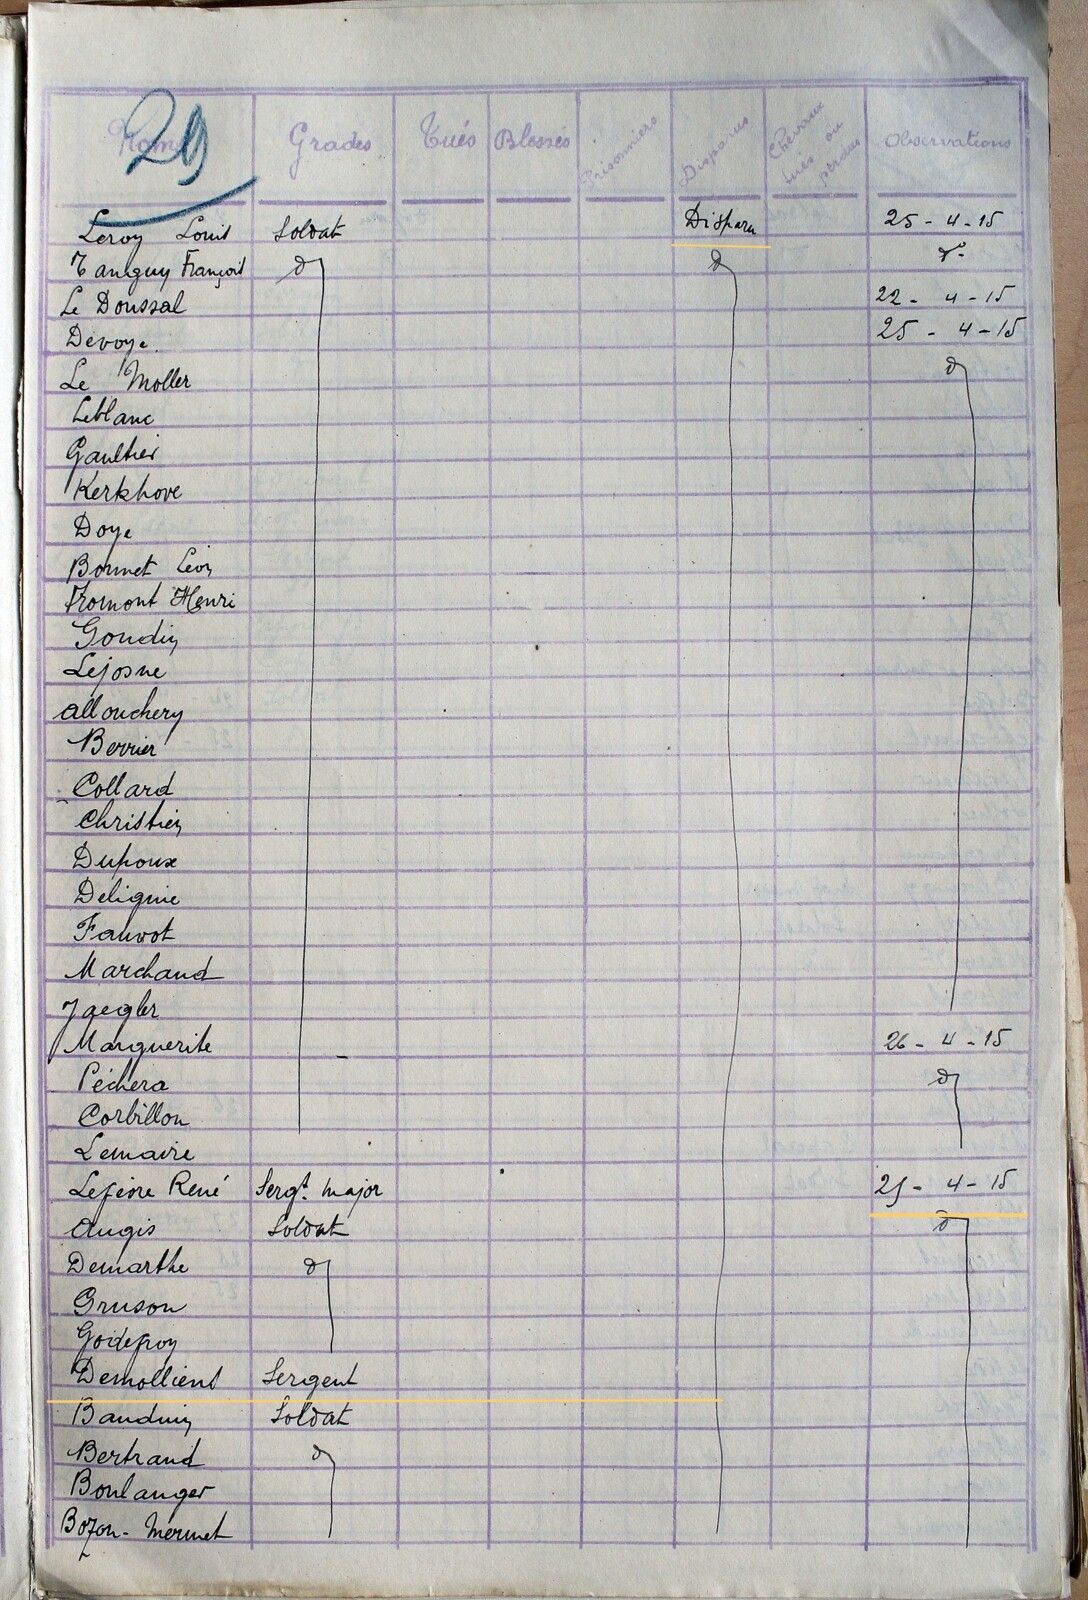 29
Noms Grades Tués Blessés Prisonniers Disparus Chevaux tués ou perdus Observations
Leroy Louis Soldat Disparu 25 - 4 - 15
Tanguy François d° d° d°
Le Doussal 22 - 4 - 15
Devoye 25 - 4 - 15
Le Moller d°
Leblanc
Gaultier
Kerkhove
Doye
Bonnet Léon
Fromont Henri
Goudin
Lejosne
Allouchery
Berrier
Collard
Christien
Dupoux
Delignie
Fauvot
Marchand
Jaegler
Marguerite 26 - 4 - 15
Péchera d°
Corbillon
Lemaire
Lefèvre René Sergt major 25 - 4 - 15
Augis Soldat d°
Demarthe d°
Gruson
Godefroy
Demollient Sergent
Bauduin Soldat
Bertrand d°
Boulanger
Bozon-Mermet